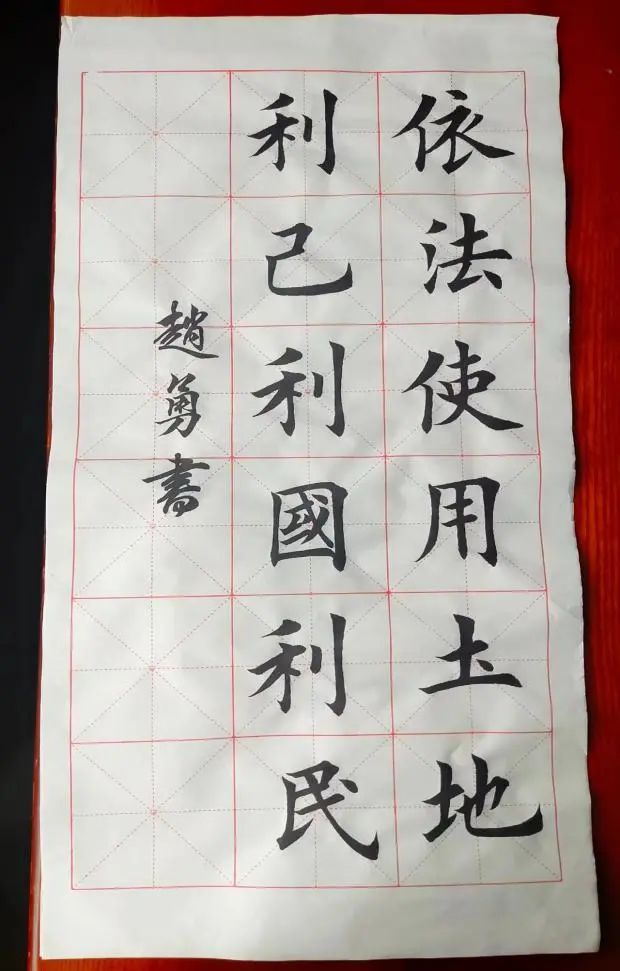 依法使用土地
利己利國利民
趙勇書